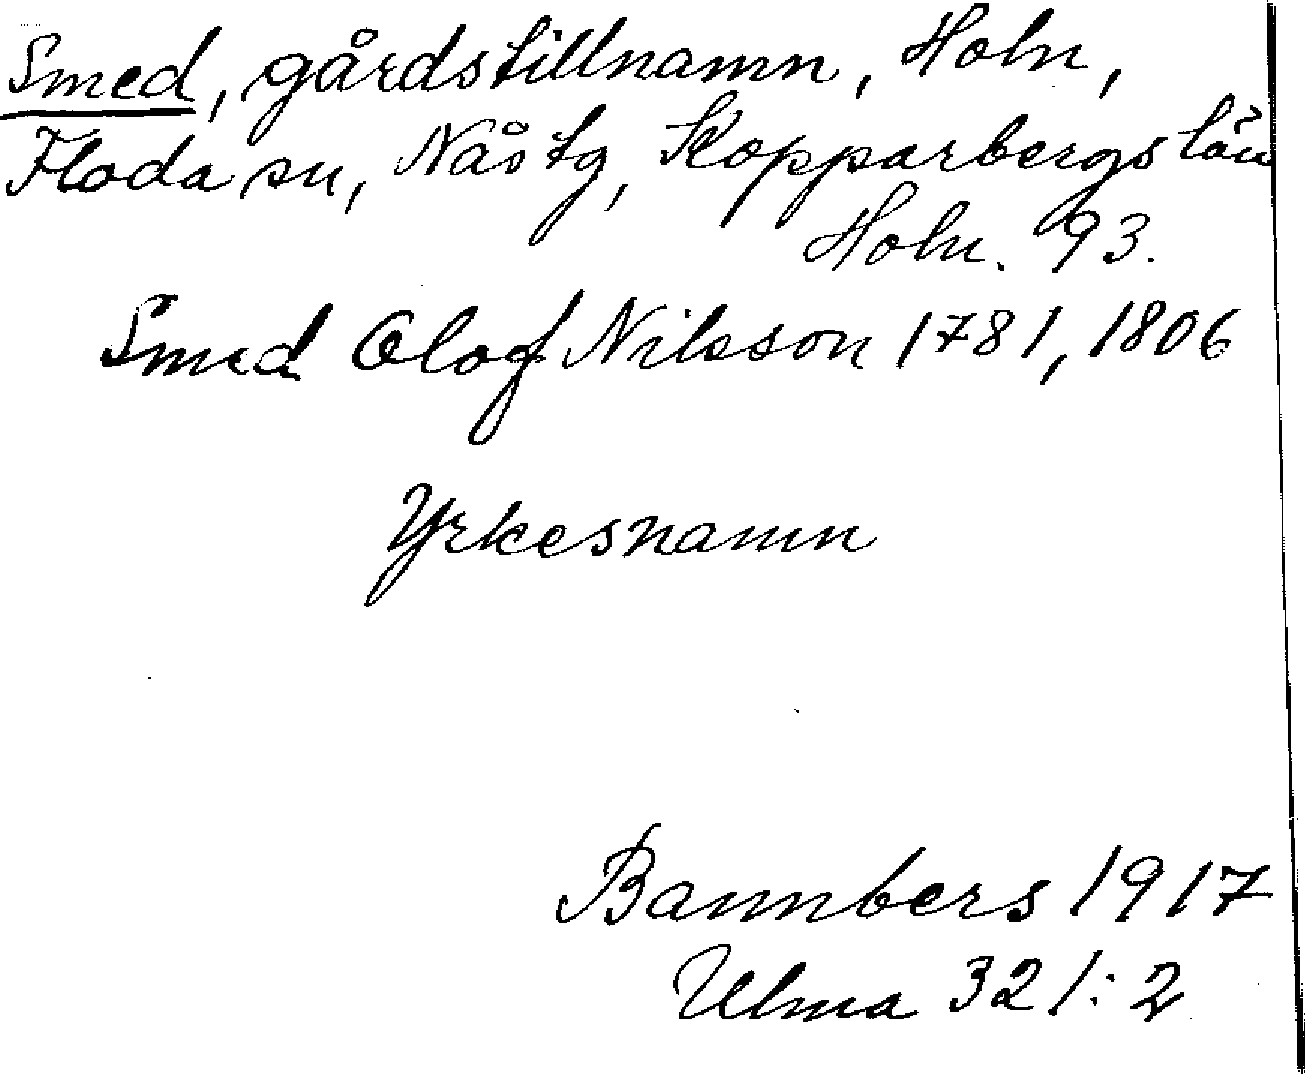 Smed, gårdstillnamn, Holn,
Floda sn, Nås tg, Kopparbergs län
Holn. 93.
Smed Olof Nilsson 1781, 1806
Yrkesnamn
Bannbers 1917
Ulma 321:2